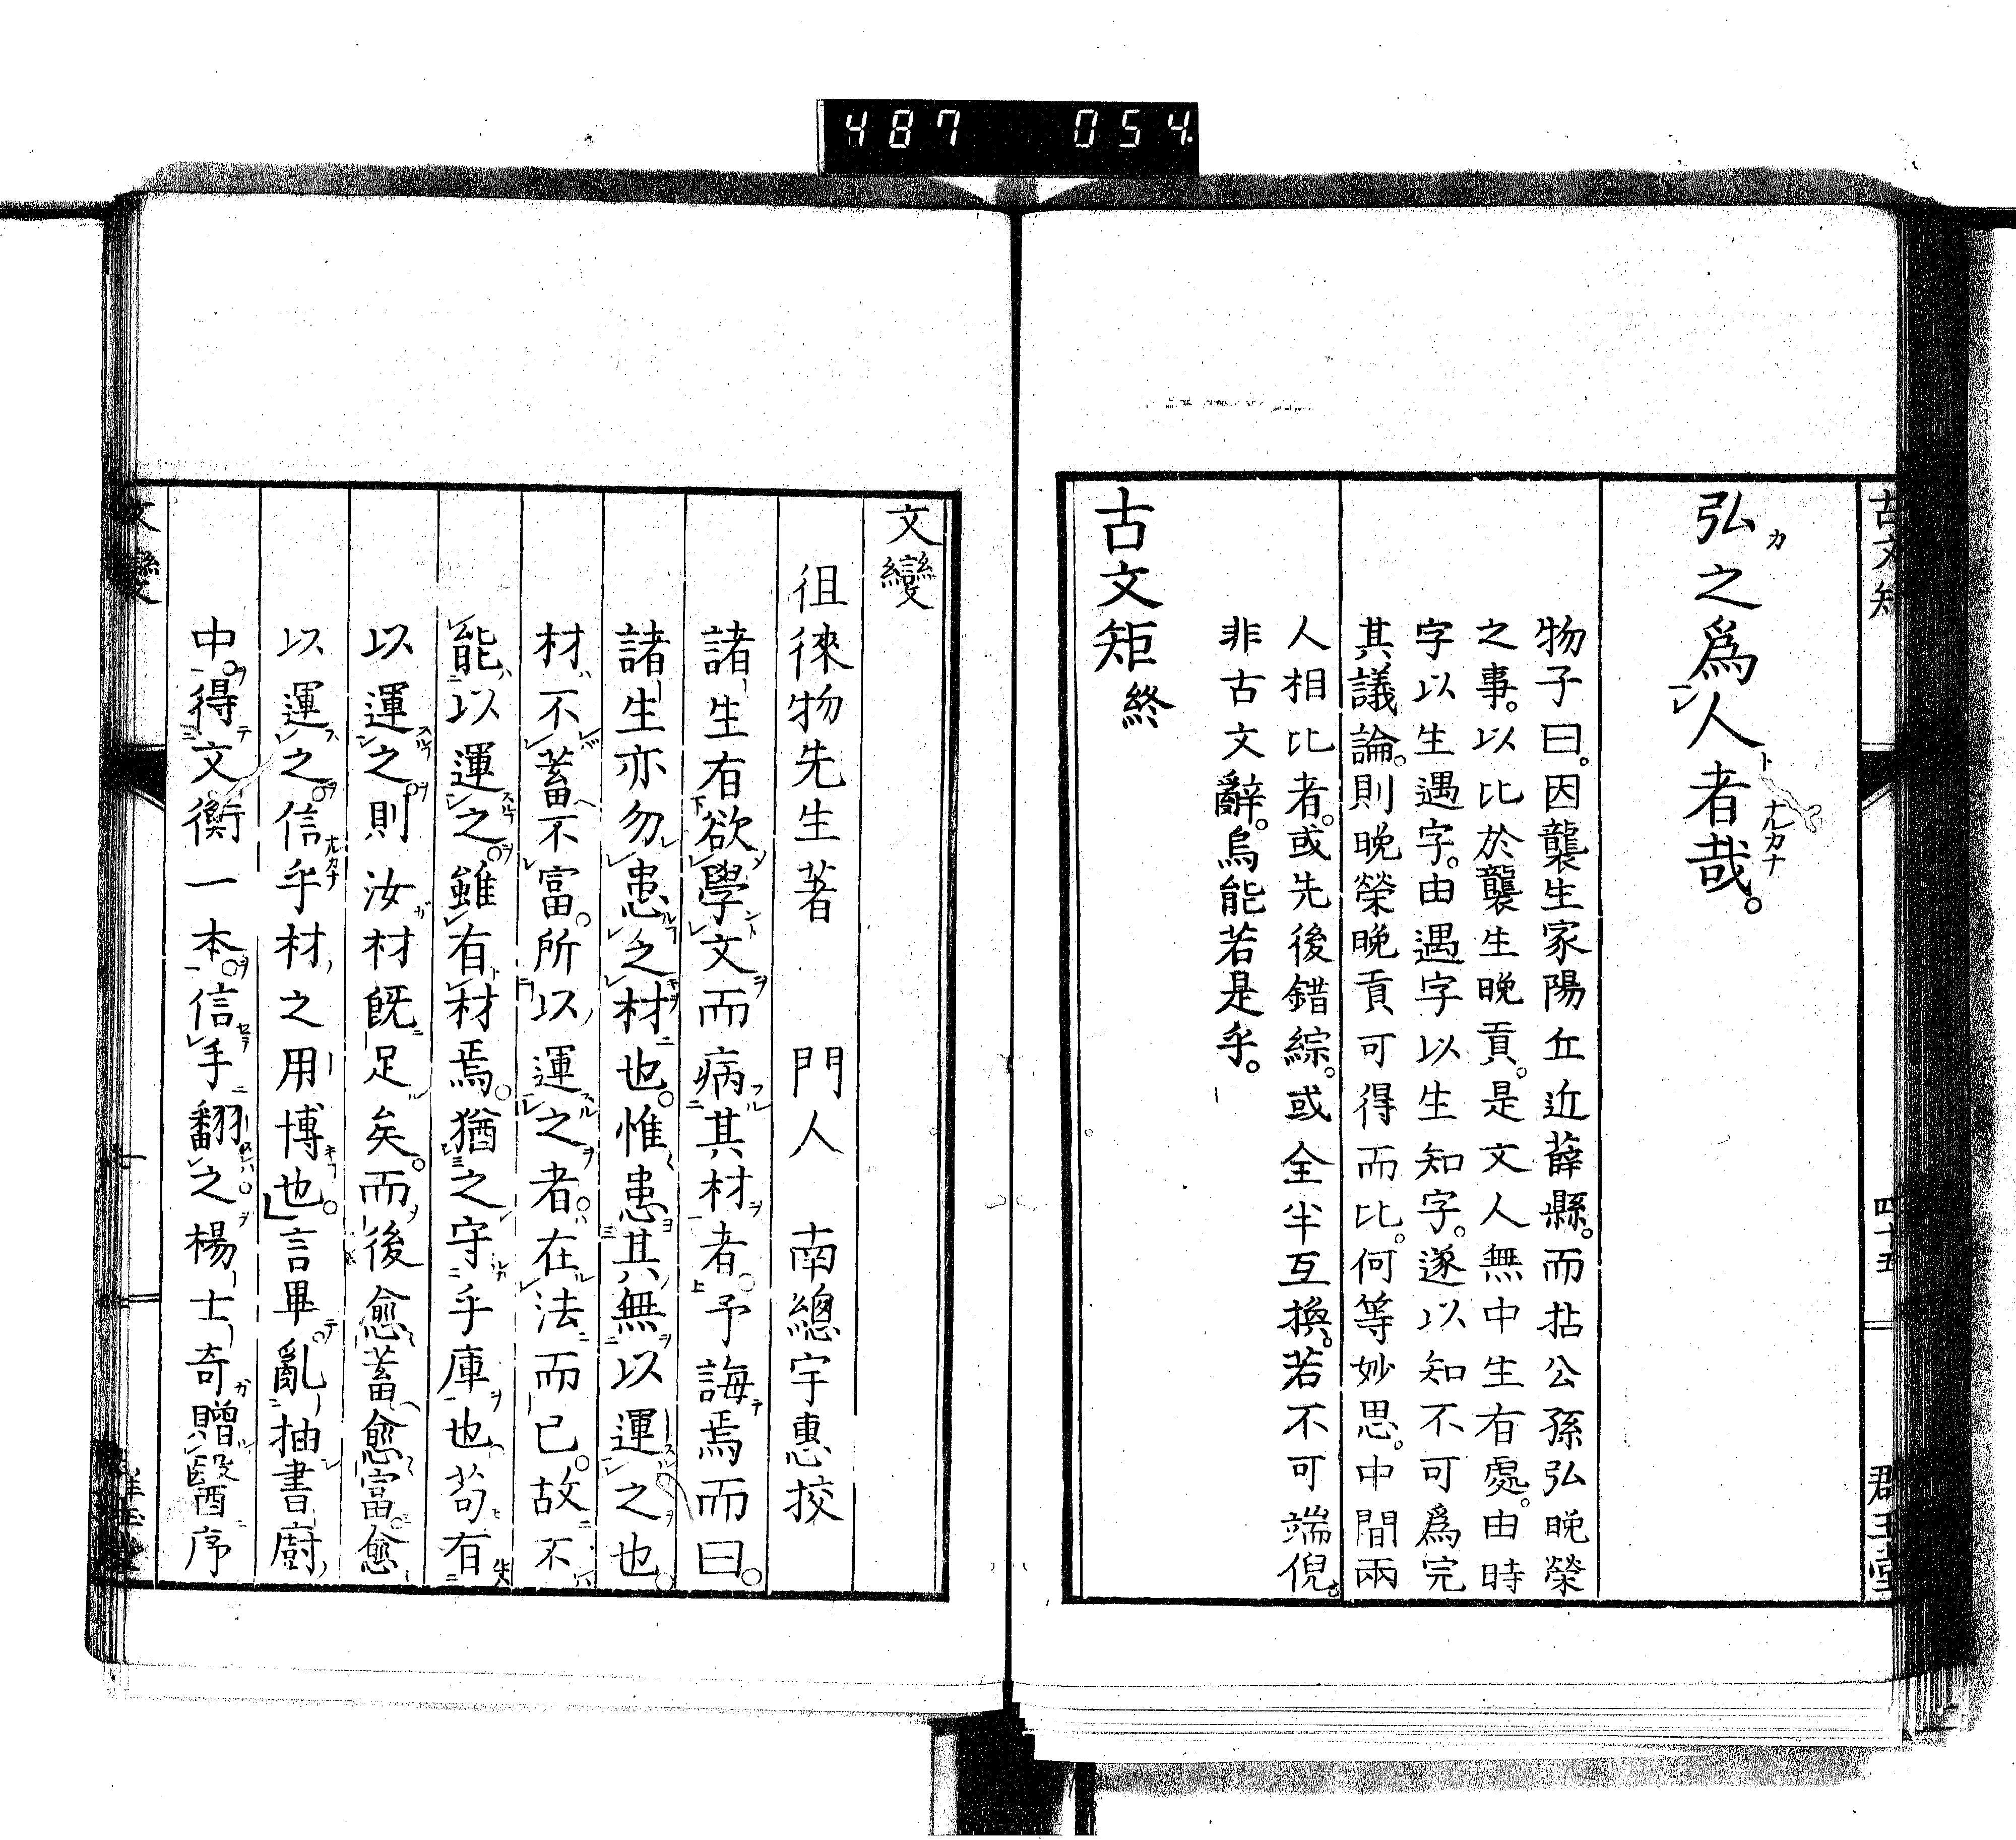 487 054
古文矩
四十五
群玉堂
弘之爲人者哉。
物子曰。因龔生家陽丘近薛縣。而拈公孫弘晚榮
之事。以比於龔生晚貢。是文人無中生有處。由時
字以生遇字。由遇字以生知字。遂以知不可爲完
其議論。則晚榮晚貢可得而比。何等妙思。中間兩
人相比者。或先後錯綜。或全半互換。若不可端倪。
非古文辭。烏能若是乎。
古文矩終
文變
徂徠物先生著 門人 南總宇惠挍
諸生有欲學文而病其材者。予誨焉而曰。
諸生亦勿患之材也。惟患其無以運之也。
材不蓄不富。所以運之者。在法而已。故不
能以運之。雖有材焉。猶之守乎庫也。苟有
以運之。則汝材既足矣。而後愈蓄愈富。愈
以運之。信乎材之用博也。言畢亂抽書廚
中。得文衡一本。信手翻之。楊士奇贈醫序
文變